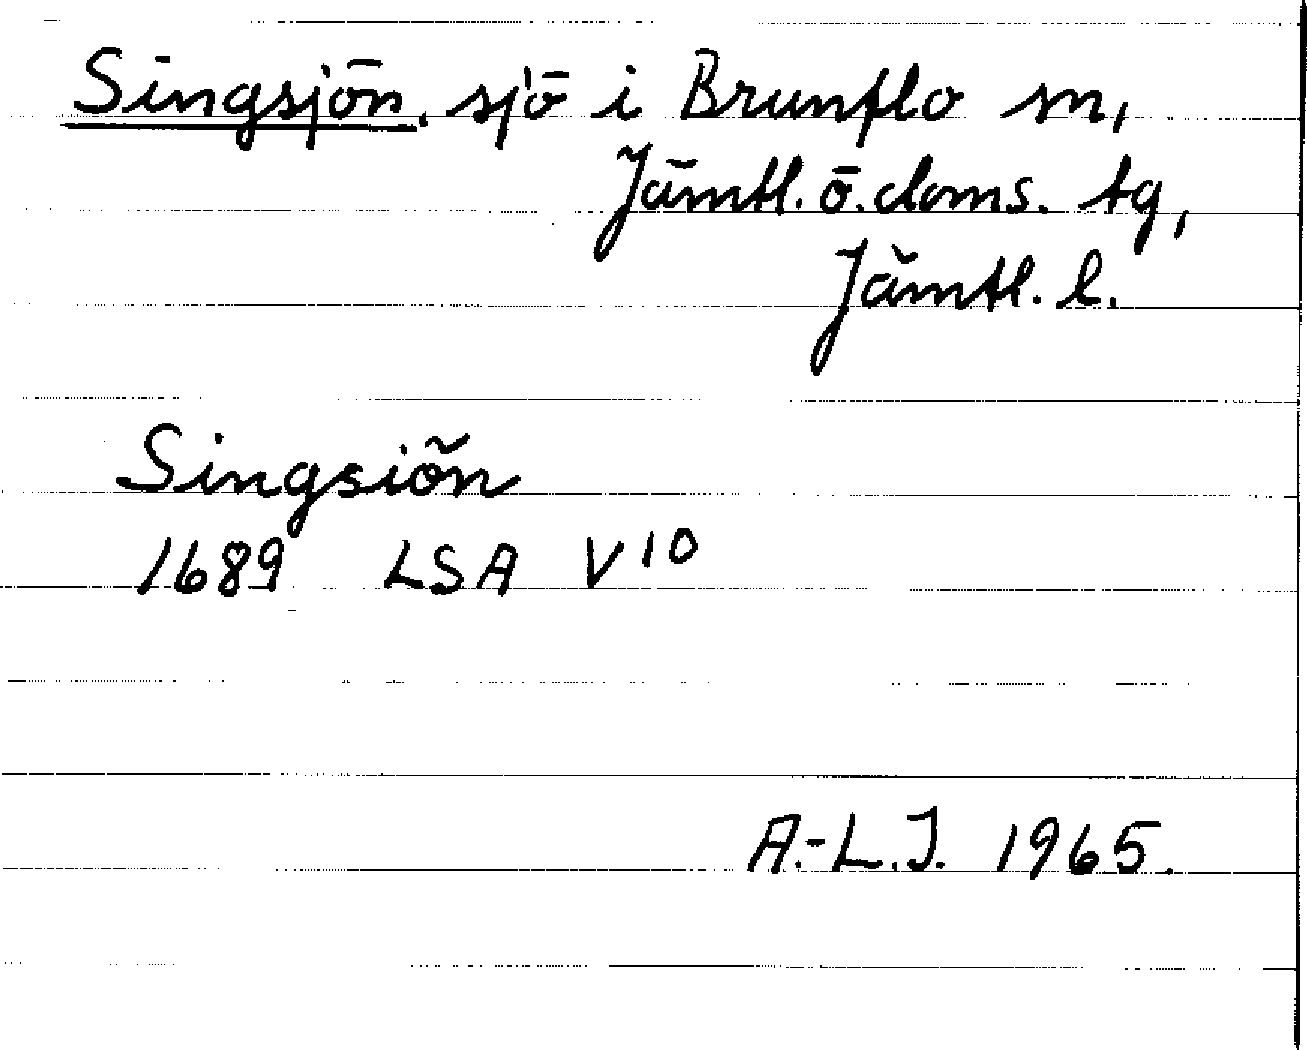 Singsjön, sjö i Brunflo sn,
Jämtl. ö. doms. tg,
Jämtl. l.
Singsiön
1689 LSA V10
A.-L.J. 1965.